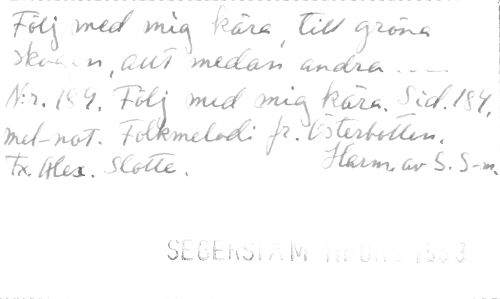 Följ med mig kära, till gröna
skogen, allt medan andra ....
N:r. 184. Följ med mig kära. Sid. 184,
mel-not. Folkmelodi fr. Österbotten.
Tx. Alex. Slotte. Harm. av S. S-m.
SEGERSTAM